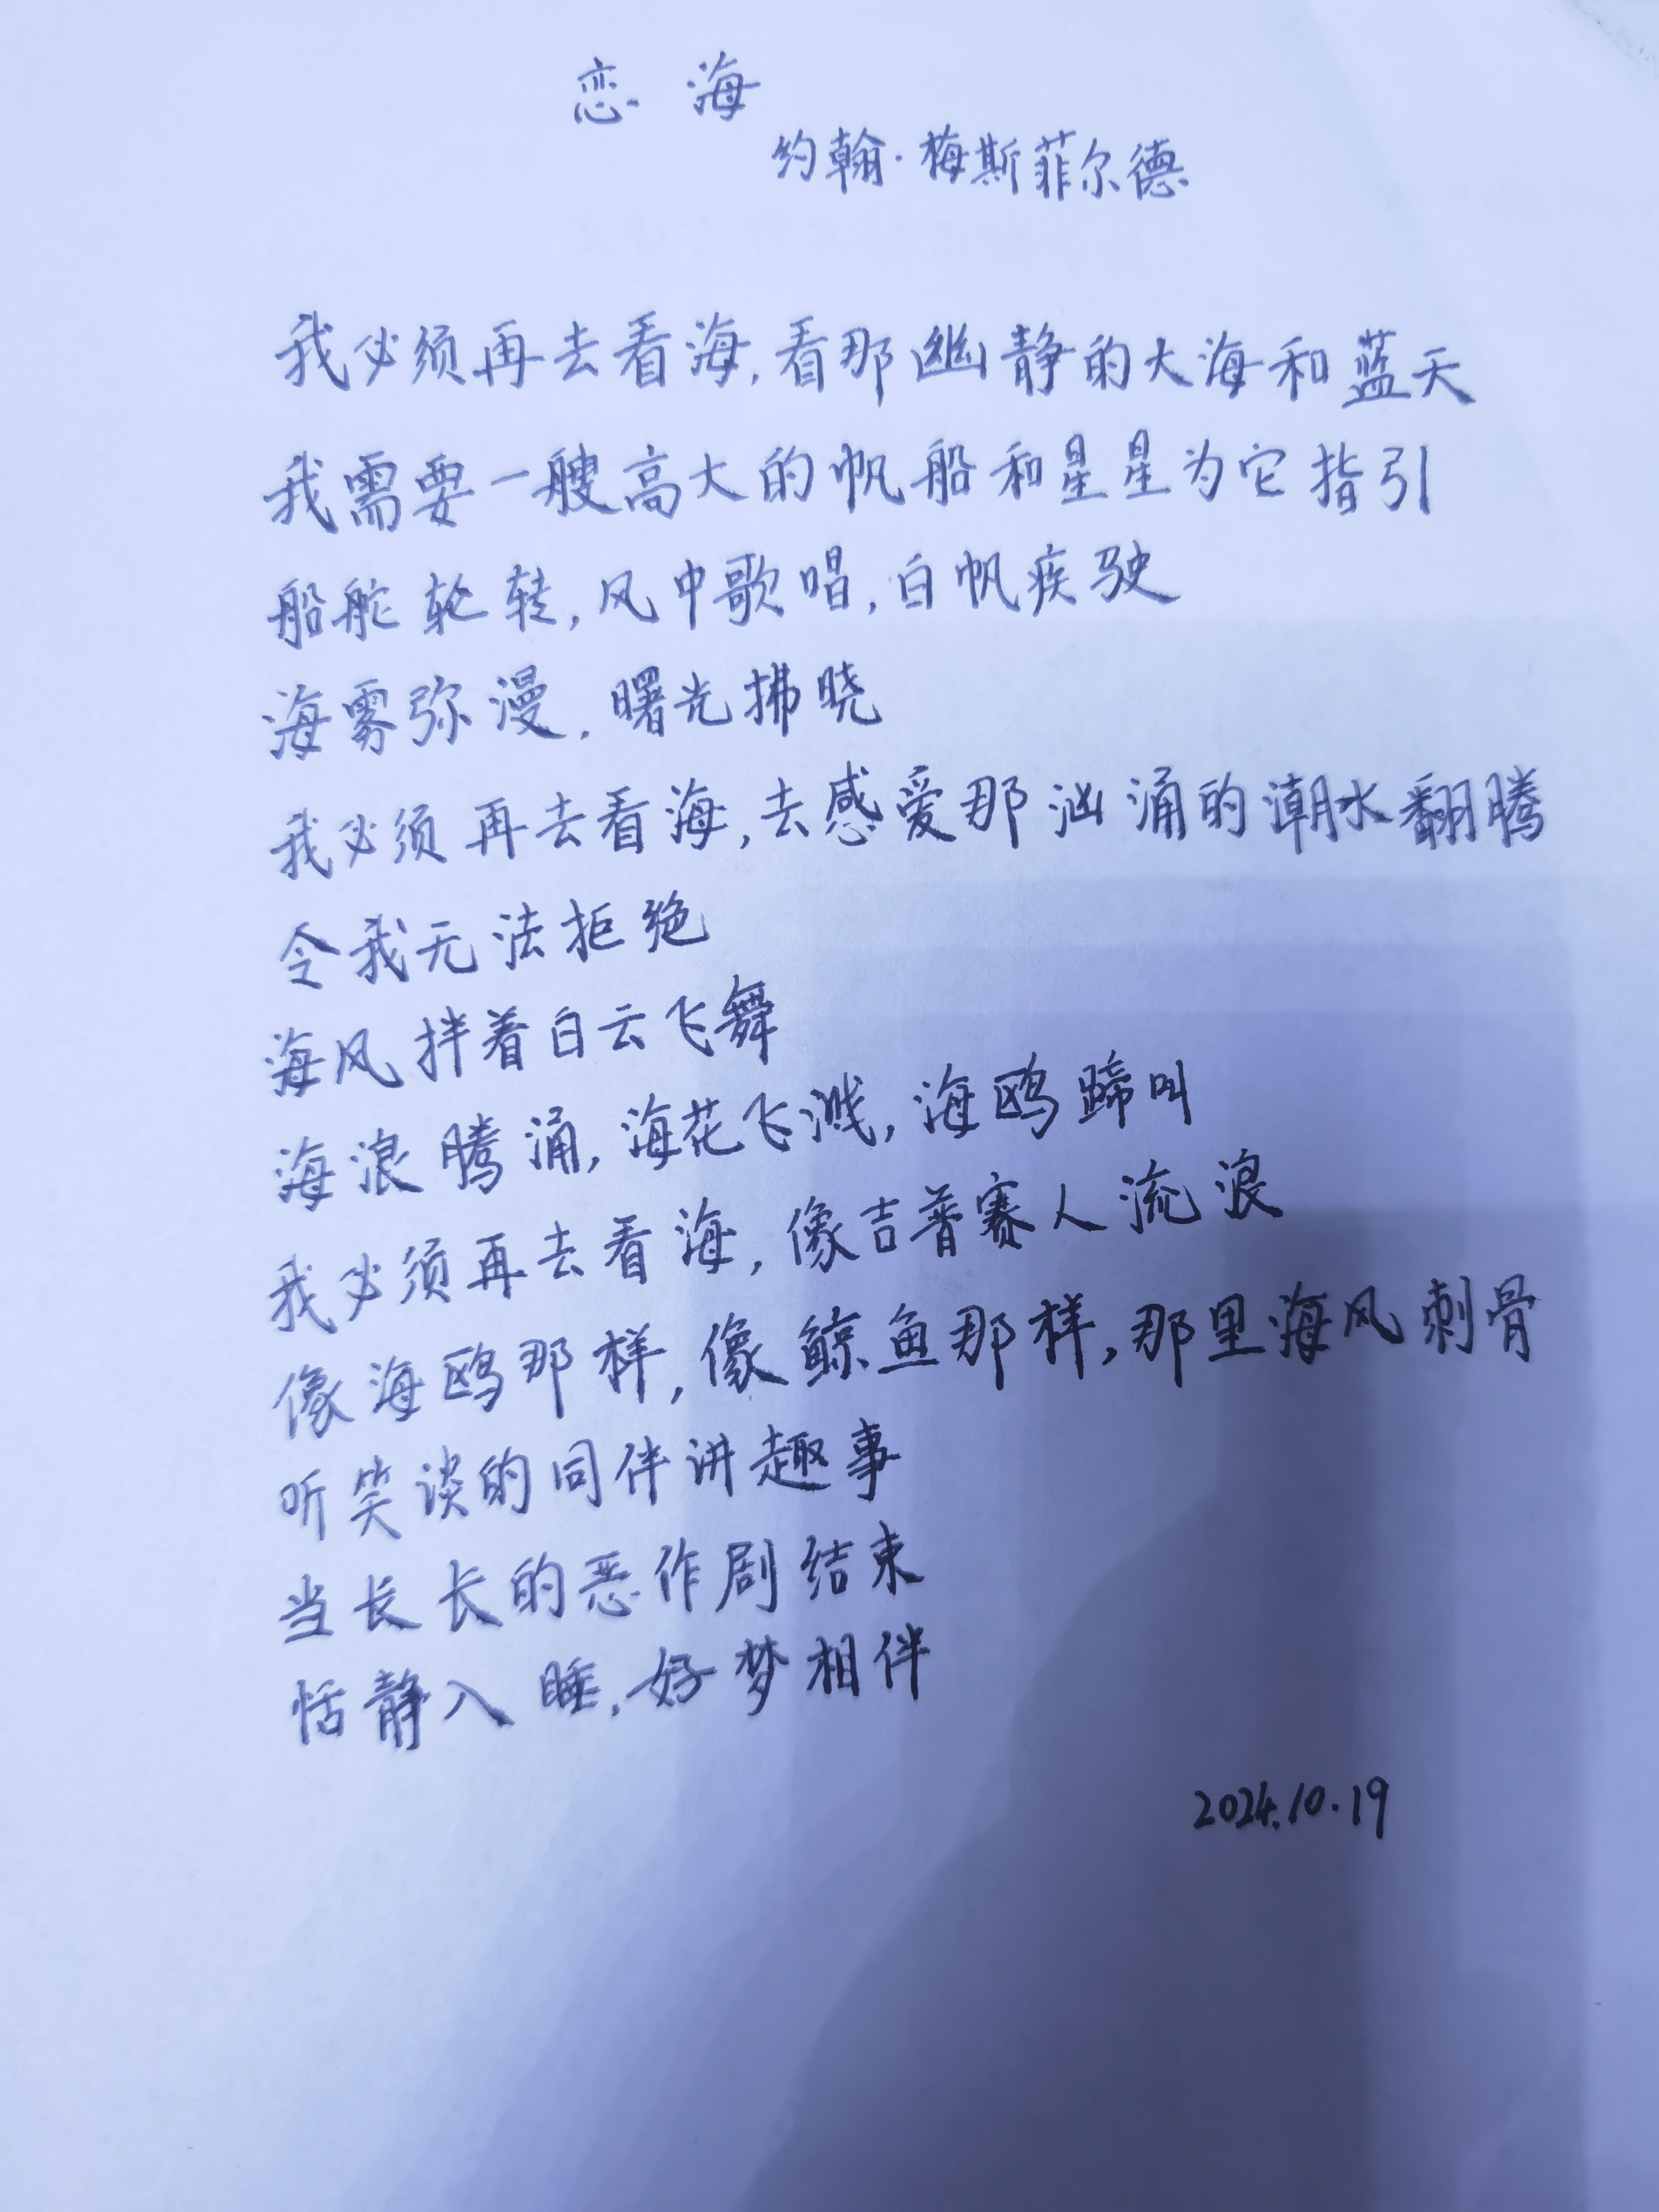 恋海
约翰·梅斯菲尔德
我必须再去看海,看那幽静的大海和蓝天
我需要一艘高大的帆船和星星为它指引
船舵轮转,风中歌唱,白帆疾驶
海雾弥漫,曙光拂晓
我必须再去看海,去感爱那汹涌的潮水翻腾
令我无法拒绝
海风拌着白云飞舞
海浪腾涌,海花飞溅,海鸥蹄叫
我必须再去看海,像吉普赛人流浪
像海鸥那样,像鲸鱼那样,那里海风刺骨
听笑谈的同伴讲趣事
当长长的恶作剧结束
恬静入睡,好梦相伴
2024.10.19